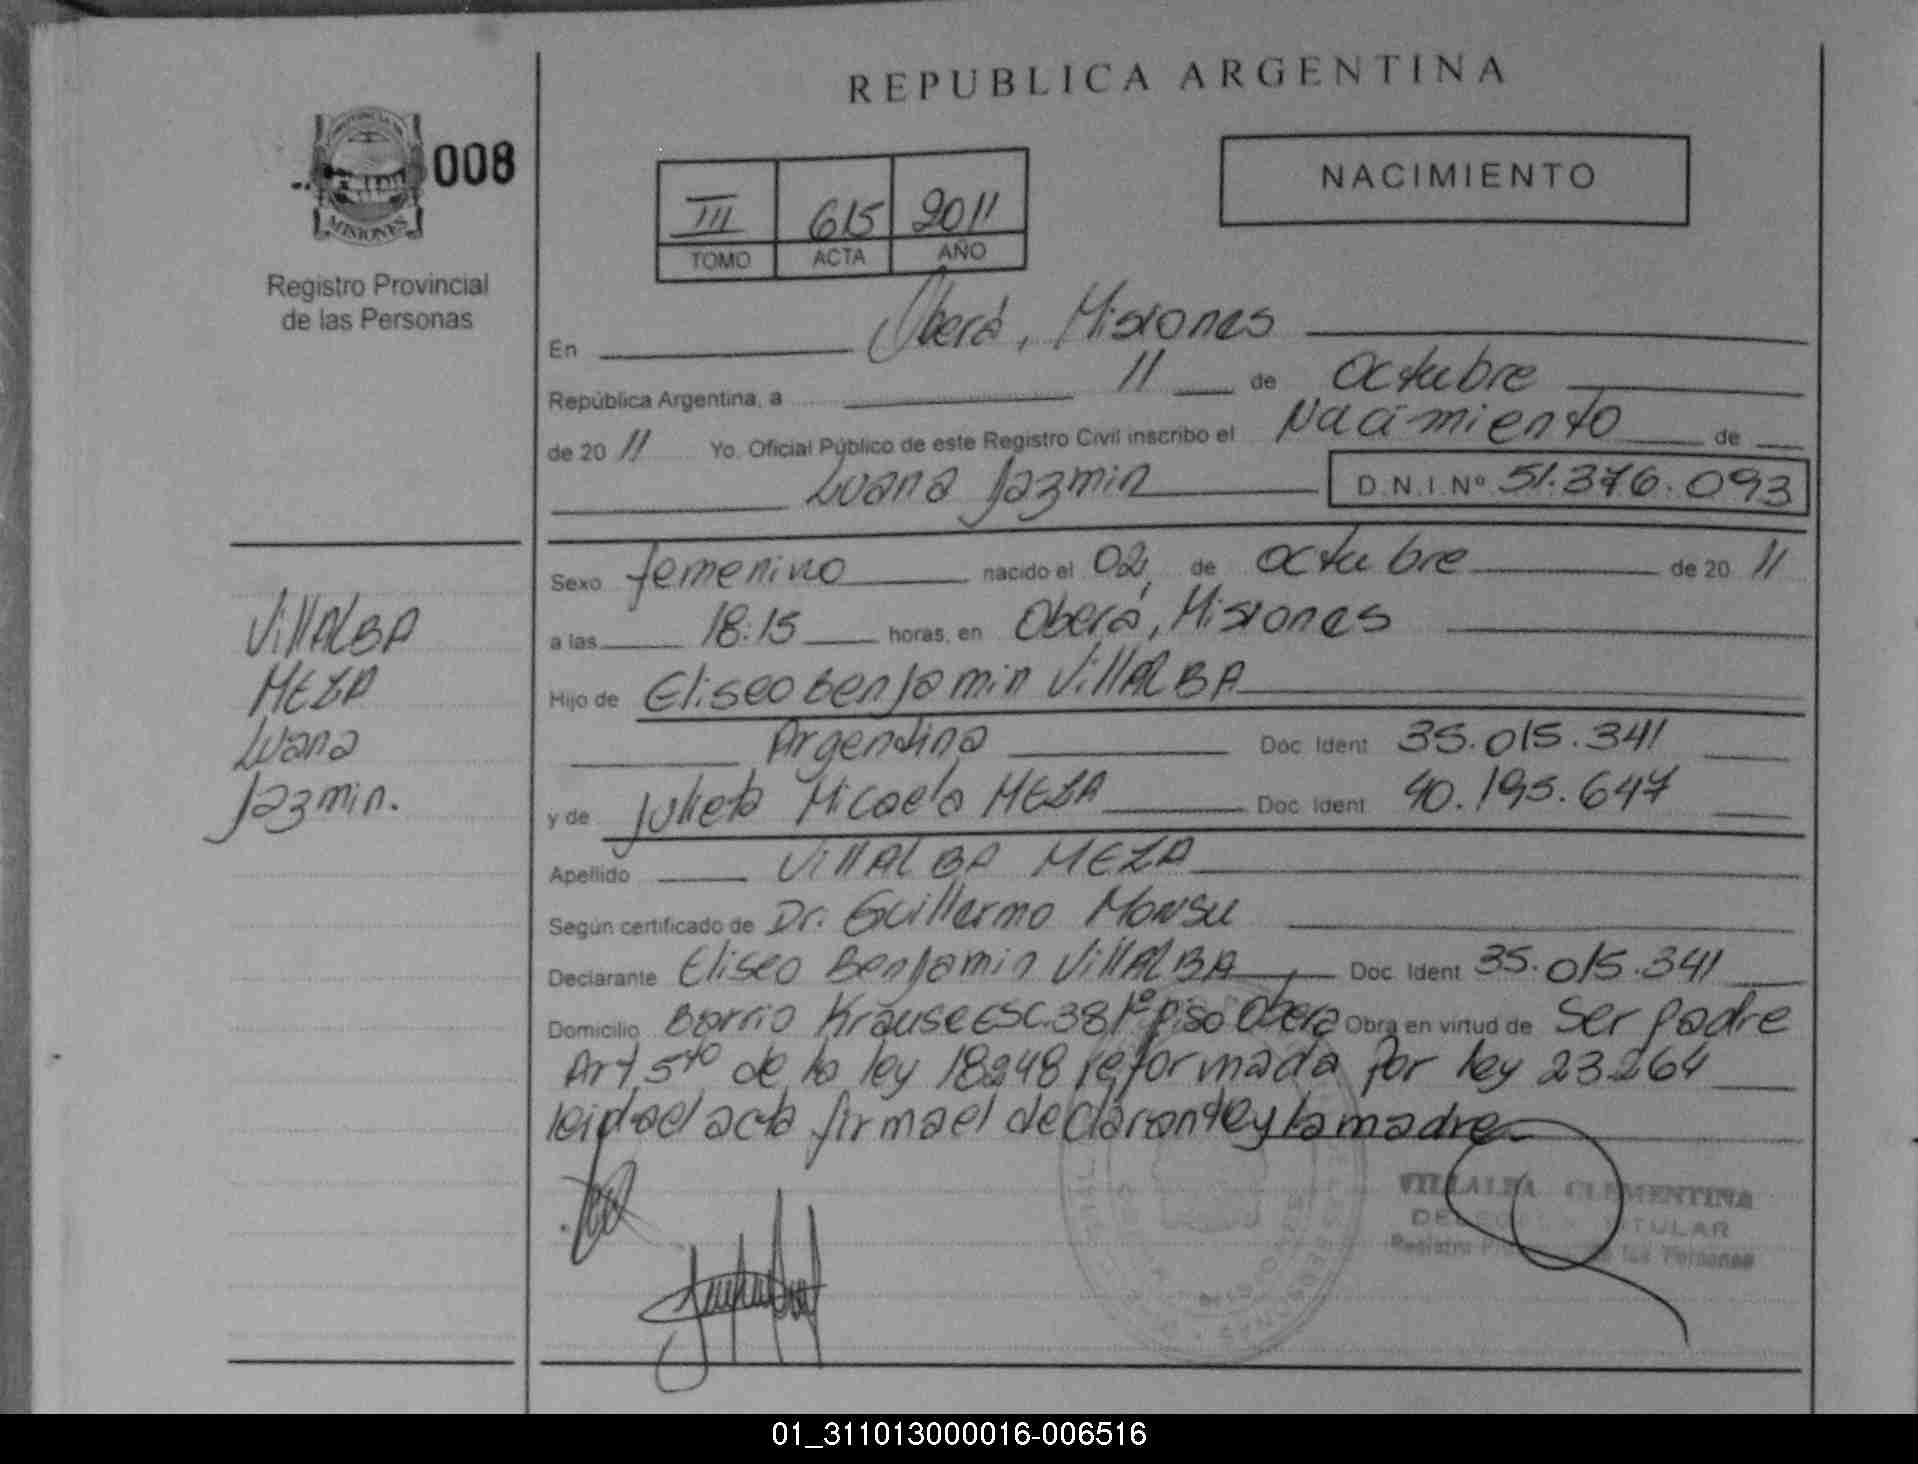 REPUBLICA ARGENTINA
PROVINCIA DE
MISIONES
008
Registro Provincial
de las Personas
NACIMIENTO
III 615 2011
TOMO ACTA AÑO
En Oberá, Misiones
República Argentina, a 11 de Octubre
de 2011 Yo. Oficial Público de este Registro Civil inscribo el Nacimiento de
Luana Jazmin D.N.I.Nº 51.376.093
Sexo femenino nacido el 02 de Octubre de 2011
a las 18:15 horas, en Oberá, Misiones
Hijo de Eliseo Benjamin VillALBA
Argentina Doc. Ident 35.015.341
y de Julieta Micaela MEZA Doc. Ident 40.195.647
Apellido VillALBA MEZA
Según certificado de Dr. Guillermo Monsu
Declarante Eliseo Benjamin VillALBA Doc. Ident 35.015.341
Domicilio Barrio Krause ESC.38 1º piso Oberá Obra en virtud de Ser padre
Art 5to de la ley 18248 reformada por ley 23.264
leida el acta firma el declarante y la madre
VillALBA
MEZA
Luana
Jazmin.
VILLALBA CLEMENTINA
TITULAR
de las Personas
01_311013000016-006516